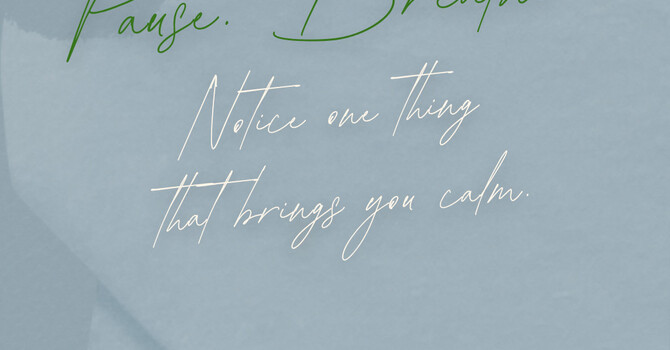 Pause. Breath
Notice one thing
that brings you calm.